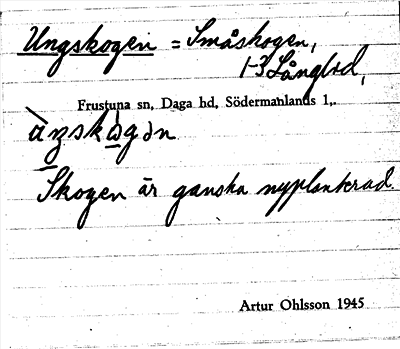 Ungskogen = Småskogen,
1-3 Långbd,
Frustuna sn, Daga hd, Södermanlands l,.
Skogen är ganska nyplanterad.
Artur Ohlsson 1945